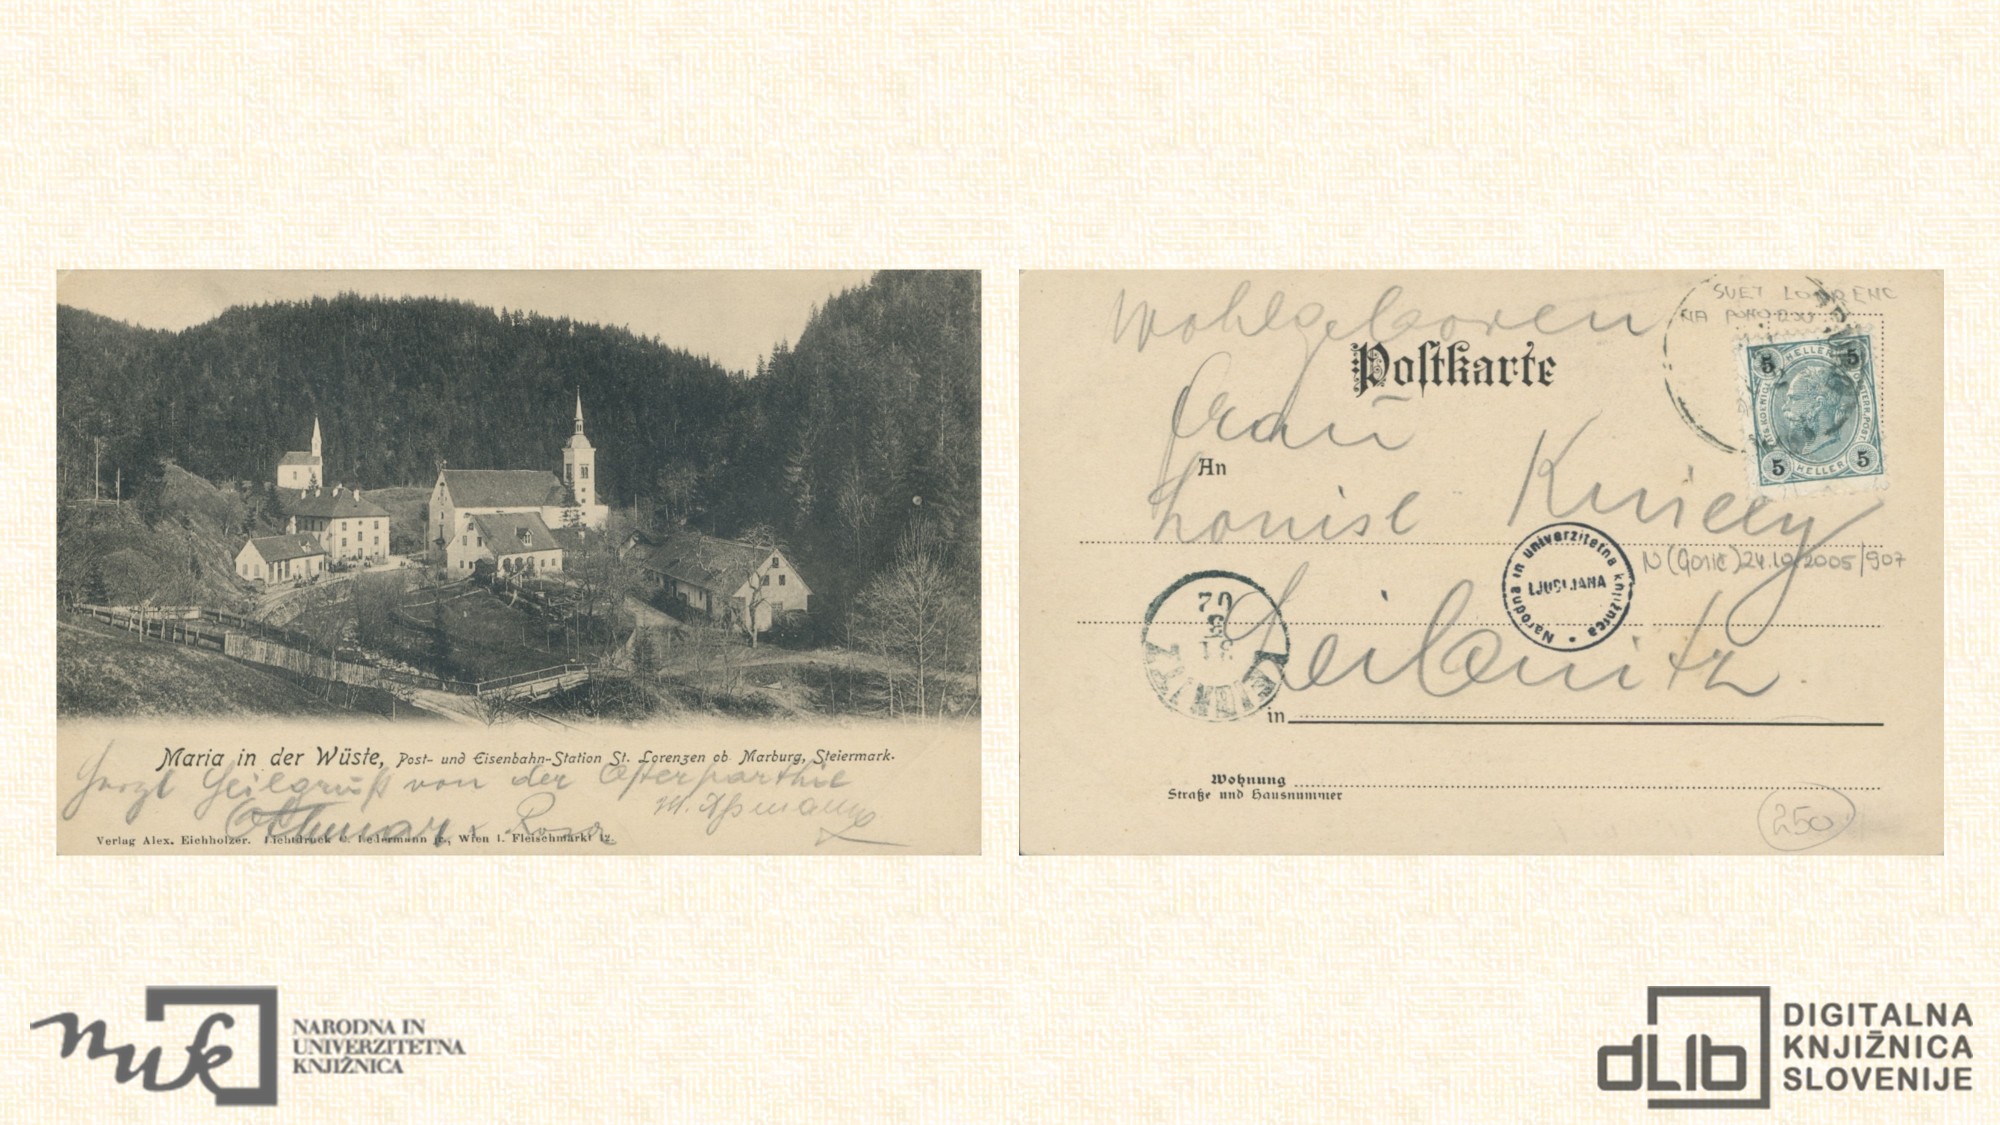 Maria in der Wüste, Post- und Eisenbahn-Station St. Lorenzen ob Marburg, Steiermark.
Herzl Heilgruß von der Osterparthie
Othmar + Rosa
Verlag Alex. Eichholzer. Lichtdruck C. Ledermann jr., Wien I. Fleischmarkt 12.
Wohlgeboren
SVET LOVRENC
NA POHORJU
Postkarte
5 HELLER 5
5 HELLER 5
Frau
An
Louise
Narodna in univerzitetna knjižnica
LJUBLJANA
N(Gorič)24.10.2005/907
02
3
31
LEIBNITZ
Leibnitz.
in
Wohnung
Straße und Hausnummer
250
nuk
NARODNA IN
UNIVERZITETNA
KNJIŽNICA
dLib
DIGITALNA
KNJIŽNICA
SLOVENIJE